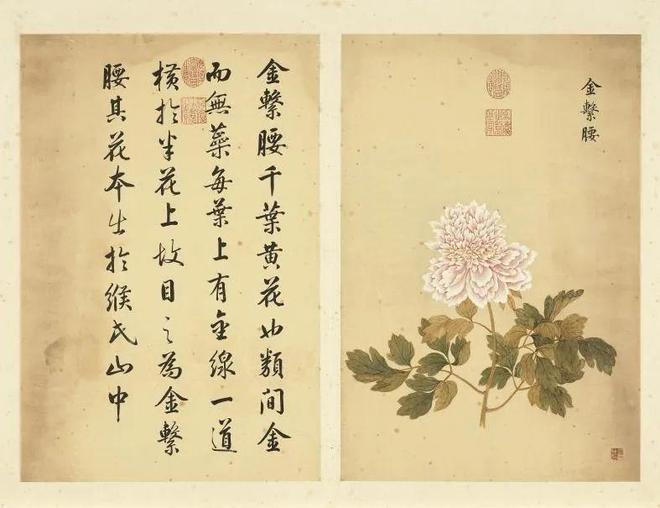 金繫腰
金繫腰千葉黃花也類間金
而無蘂每葉上有金線一道
橫於半花上故目之為金繫
腰其花本出於緱氏山中